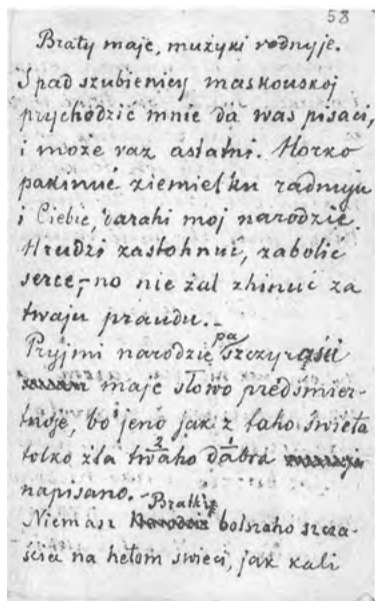 58
Braty maje, mużyki rodnyje.
Spad szubienicy maskouskoj
prychodzić mnie da was pisaci,
i może raz astatni. Horko
pakinuć ziemielku radnuju
i Ciebie, darahi moj narodzie.
Hrudzi zastohnuć, zabolić
serce,– no nie żal zhinuć za
twaju praudu.–
Pryjmi narodzie pa szczyraści
maje słowo predśmier-
tnoje, bo jeno jak z taho świeta
tolko dla 2 twaho 1 dabra
napisano.–
Niemasz Bratkiż bolszaho szcza-
ścia na hetom swieci, jak kali